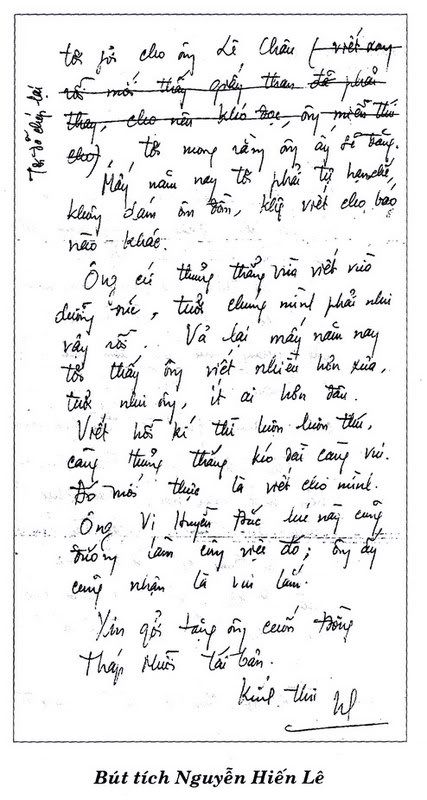 tôi gởi cho ông Lê Châu (viết xong
rồi mới thấy giấy than đã phải
thay, cho nên khó đọc, ông miễn thứ
cho), tôi mong rằng ông ấy sẽ đăng.
Tôi đã chép lại
Mấy năm nay tôi phải tự hạn chế,
không dám ôm đồm, khg viết cho báo
nào khác.
Ông cứ thủng thẳng vừa viết vừa
dưỡng sức, tuổi chúng mình phải như
vậy rồi. Vả lại mấy năm nay
tôi thấy ông viết nhiều hơn xưa,
tuổi như ông, ít ai hơn đâu.
Viết hồi kí thì luôn luôn thú,
càng thủng thẳng kéo dài càng vui.
Đó mới thực là viết cho mình.
Ông Vi Huyền Đắc lúc này cũng
đương làm công việc đó; ông ấy
cũng nhận là vui lắm.
Xin gởi tặng ông cuốn Đồng
Tháp Mười tái bản.
Kính thư
Bút tích Nguyễn Hiến Lê